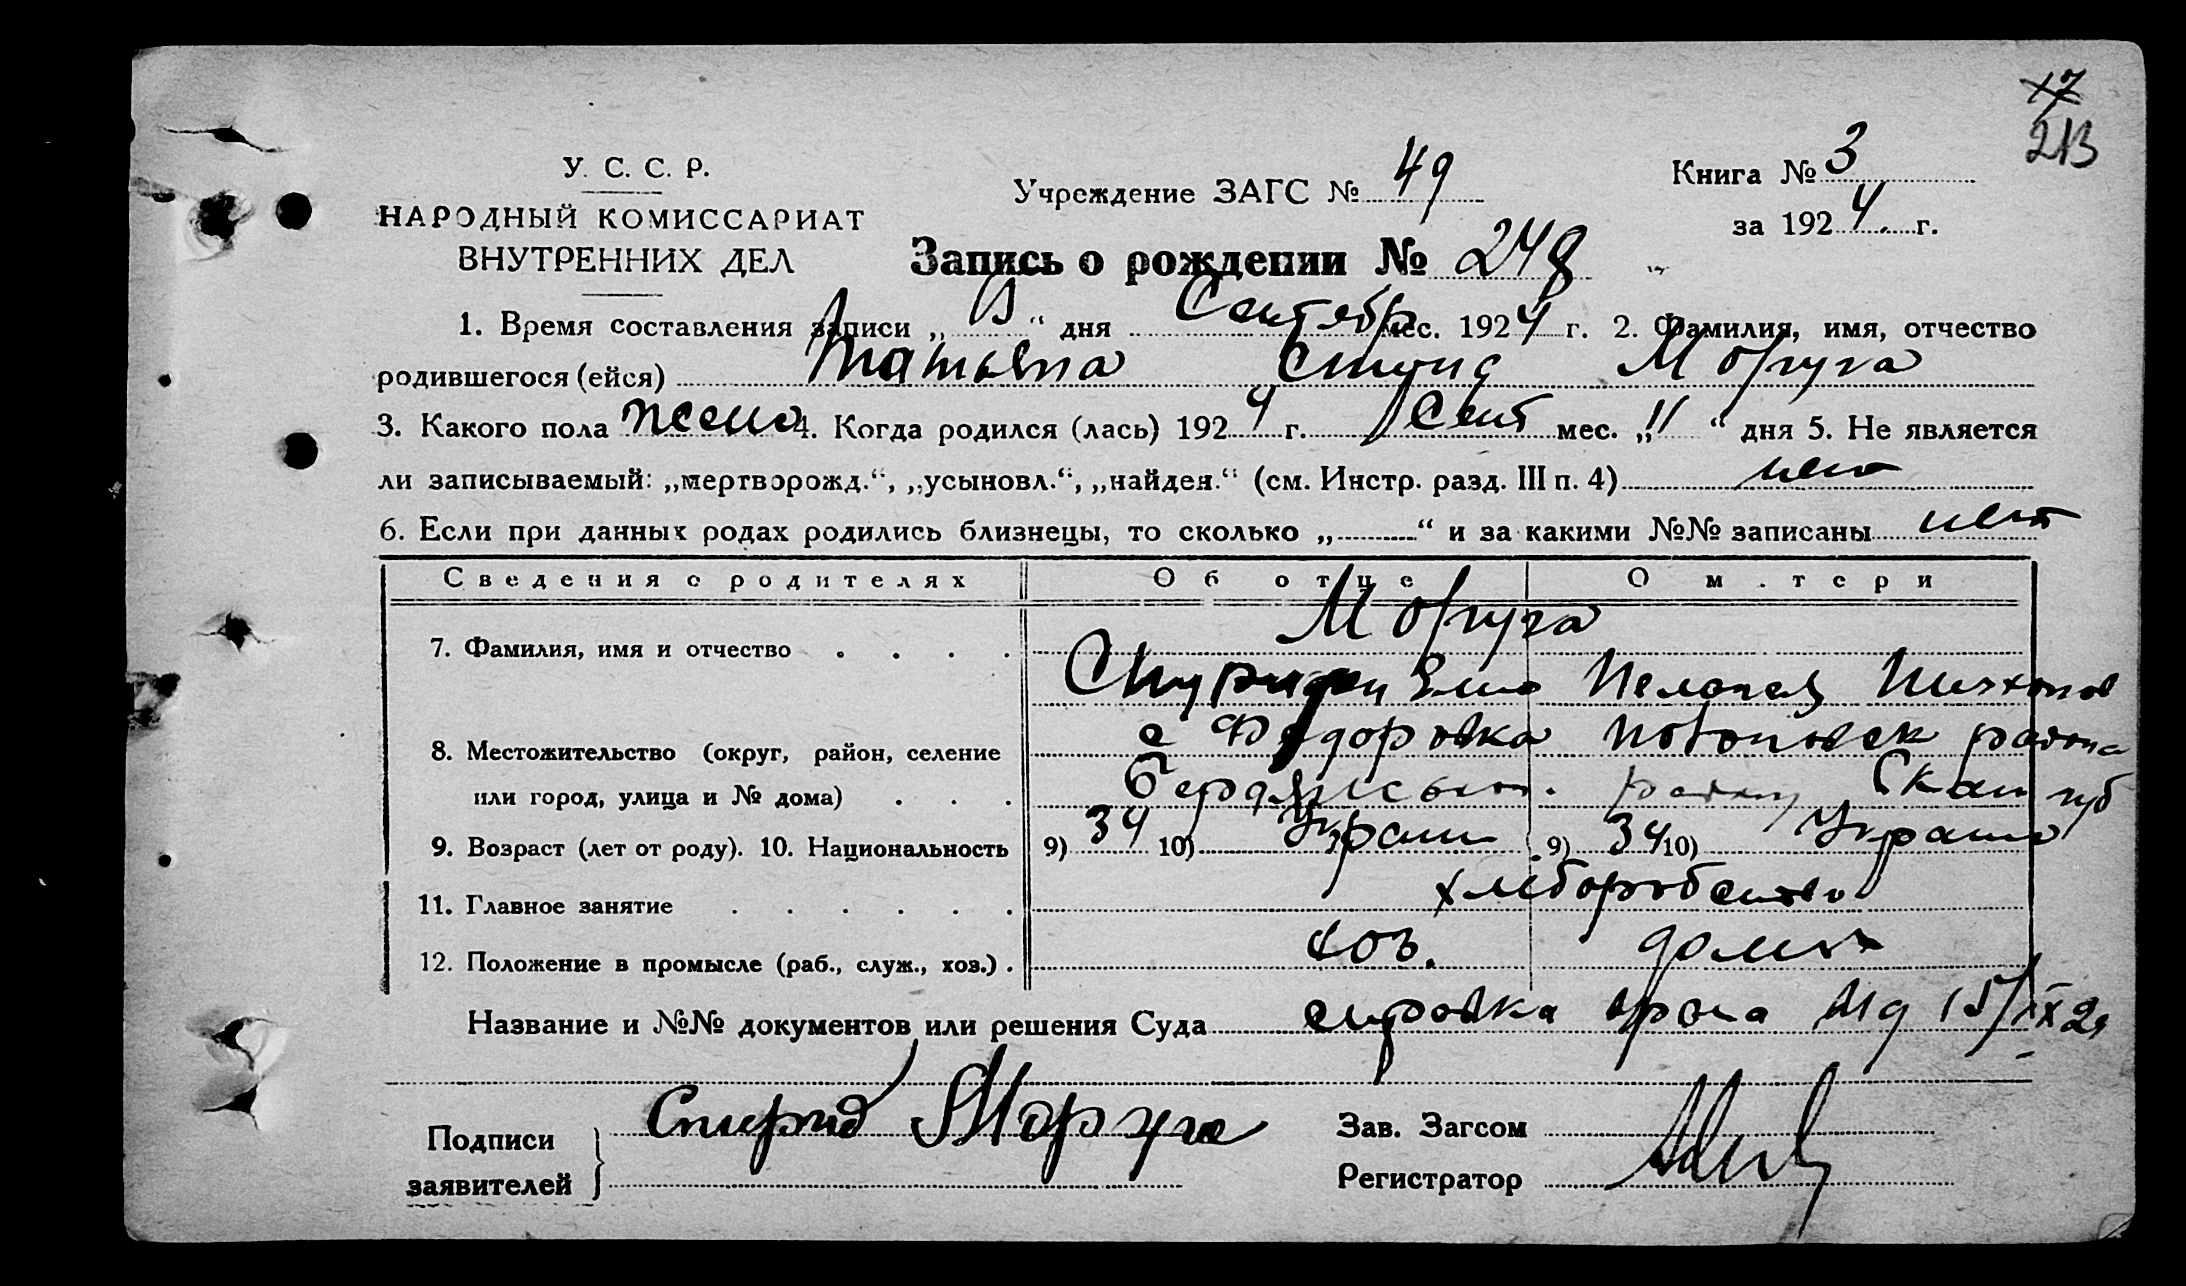 17
213
У. С. С. Р.
НАРОДНЫЙ КОМИССАРИАТ
ВНУТРЕННИХ ДЕЛ
Учреждение ЗАГС № 49
Книга № 3
за 1924 г.
Запись о рождении № 248
1. Время составления записи „ “ дня Сентябр мес. 1924 г. 2. Фамилия, имя, отчество
родившегося (ейся) Татьяна Моруга
3. Какого пола жено 4. Когда родился (лась) 1924 г. Сент мес. „11“ дня 5. Не является
ли записываемый: „мертворожд.“, „усыновл.“, „найден.“ (см. Инстр. разд. III п. 4) нет
6. Если при данных родах родились близнецы, то сколько „ “ и за какими №№ записаны нет
Сведения о родителях Об отце О матери
Моруга
7. Фамилия, имя и отчество
Спиридон Емел Пелагея Тихонов
с Федоровка района
8. Местожительство (округ, район, селение
или город, улица и № дома)
9. Возраст (лет от роду). 10. Национальность 9) 34 10) Украин 9) 34 10) Украин
11. Главное занятие хлеборобство
12. Положение в промысле (раб., служ., хоз.) хоз. домх
Название и №№ документов или решения Суда справка врача 15/IX 24
Подписи заявителей Спирид Моруга
Зав. Загсом
Регистратор